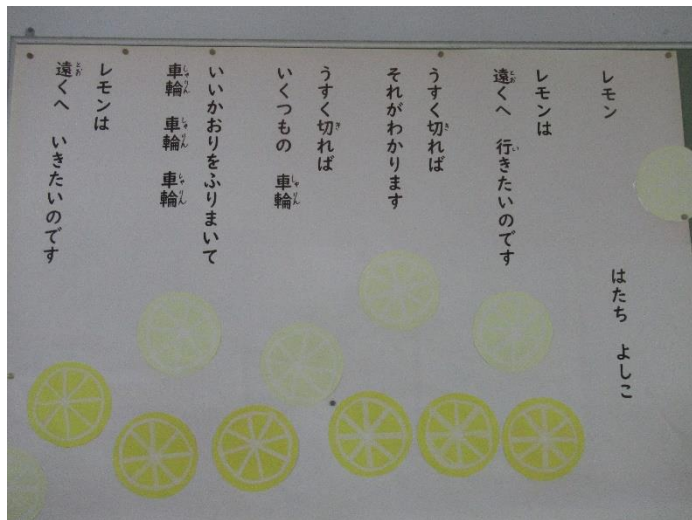 レモン
はたち よしこ
レモンは
遠くへ 行きたいのです
うすく切れば
それがわかります
うすく切れば
いくつもの 車輪
いいかおりをふりまいて
車輪 車輪 車輪
レモンは
遠くへ いきたいのです